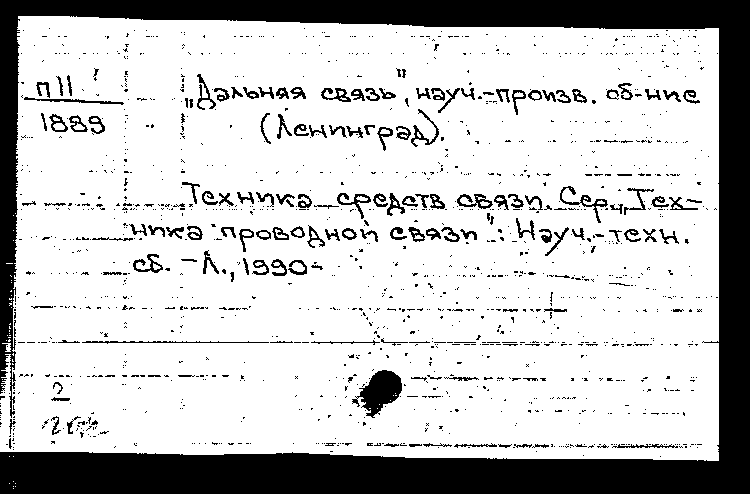 П11
1889
„Дальняя связь", науч.-произв. об-ние
(Ленинград).
Техника средств связи. Сер. „Тех-
ника проводной связи": Науч.-техн.
сб. - Л., 1990-
2